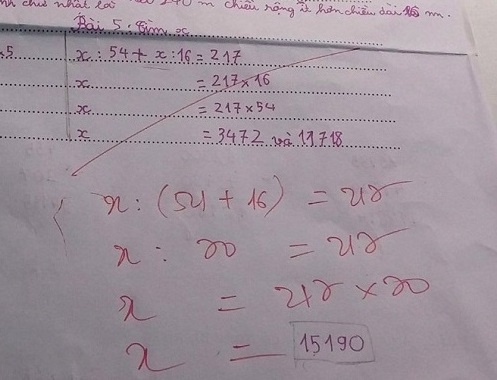 nh chữ nhật là 240 m chiều rộng ít hơn chiều dài m.
Bài 5. Tìm x
x : 54 + x : 16 = 217
x = 217 x 16
x = 217 x 54
x = 3472 và 11718
x : (54 + 16) = 217
x : 70 = 217
x = 217 x 70
x = 15190